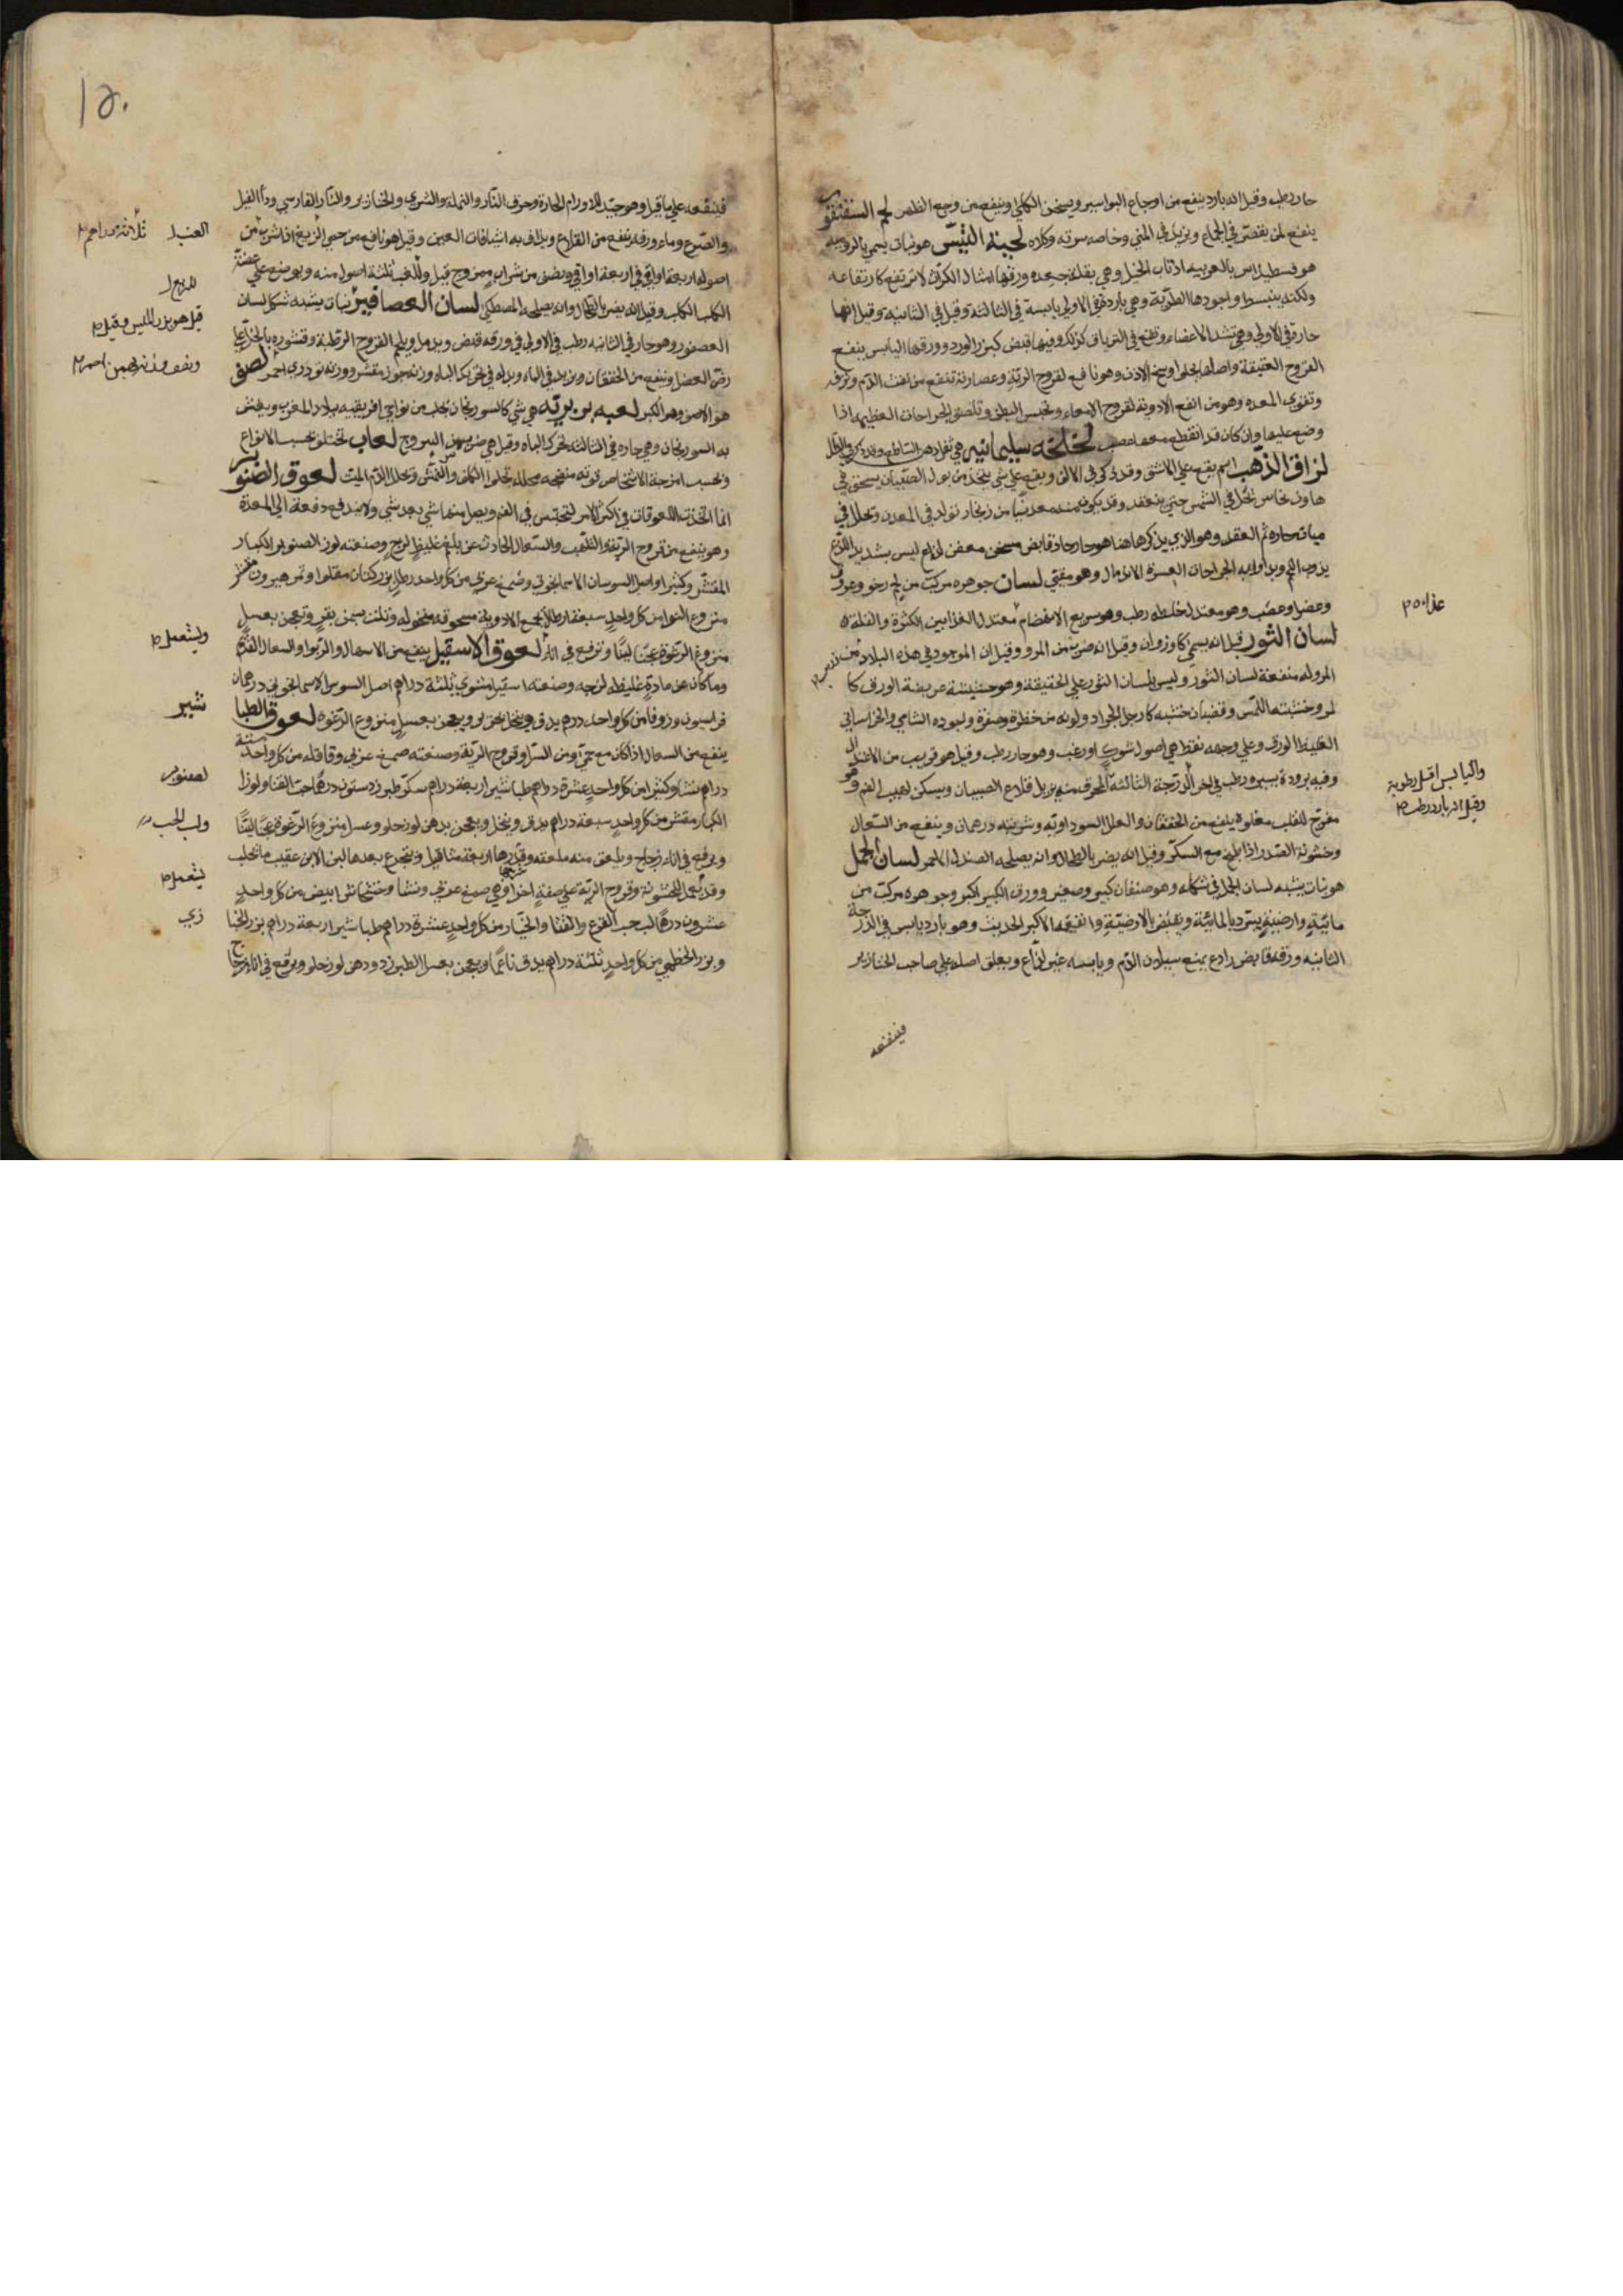 حار رطب وقيل انه بارد ينفع من اوجاع البواسير ويسخن الكلي وينفع من وجع الظهر لحم السقنقور
ينفع لمن يقصر في الجماع ويزيد في المني وخاصه سرته وكلاه لحية التيس هو نبات يسمي بالروميه
هو فسطيداس بالعربيه اذناب الخيل وهي بقلة جعده ورقها امثال الكراث لا ترتفع كارتفاعه
ولكنه ينبسط واجودها الطرية وهي باردة في الاولي يابسة في الثالثة وقيل في الثانيه وقيل انها
حارة في الاولي وهي تشد الاعضاء وتقع في الترياق لذلك وفيها قبض كبزر الورد وورقها اليابس ينفع
القروح العتيقة واصلها يجلوا وسخ الاذن وهو نافع لقروح الرية وعصارته تنفع من نفث الدم ونزفه
وتقوي المعده وهو من انفع الادوية لقروح الامعاء وتحبس البطن وتلصق الجراحات العظيمه اذا
وضع عليها وان كان قد انقطع معها عصب لخلخه سليمانيه هي
لزاق الذهب اسم يقع علي الاشق وقد ذكر في الالف ويقع علي شي يتخذ من بول الصبيان يسحق في
هاون نحاس بخل في الشمس حتي ينعقد وقد يكون منه معدنيا من زنجار تولد في المعدن وتحلل في
مياة حاره ثم انعقد وهو الذي يذكر هاهنا هو حار حاد قابض مسخن معفن لذاع ليس بشديد اللذع
يذوب اللحم ويداوا به الجراحات العسرة الاندمال وهو مقيي لسان جوهره مركب من لحم رخو وعروق
وعضل وعصب وهو معتدل خلطه رطب وهو سريع الانهضام معتدل الغذا بين الكثرة والقلة
لسان الثور قيل انه يسمي كاوزوان وقيل انه ضرب من المرو وقيل ان الموجود في هذه البلاد من
المر وله منفعة لسان الثور وليس بلسان الثور علي الحقيقة وهو حشيشة عريضة الورق كا
لمرو خشنة اللمس وقضبان خشبه كارجل الجراد ولونه من خضرة وصفرة واجوده الشامي والخراساني
الغليظ الورق وعلي وجهه نقط هي اصول شوك او زغب وهو حار رطب وقيل هو قريب من الاعتدال
وفيه برودة يسيره رطب في اخر الدرجة الثالثة المحرق منه يزيل قلاع الصبيان ويسكن لهيب الفم وهو
مفرح للقلب مقو له ينفع من الخفقان والعلل السوداويه وشربته درهمان وينفع من السعال
وخشونة الصدر اذا طبخ مع السكر وقيل انه يضر بالطحال وانه يصلحه الصندل الاحمر لسان الحمل
هو نبات يشبه لسان الحمل في شكله وهو صنفان كبير وصغير وورق الكبير اكبر وجوهره مركب من
مائية وارضية يبرد بالمائية ويقبض بالارضية وانفعه الاكبر الحديث وهو بارد يابس في الدرجة
الثانيه ورقه قابض رادع يمنع سيلان الدم ويابسه غير لذاع ويعلق اصله علي صاحب الخنازير
فينفعه
غذاه
واليابس اقل رطوبة
وقيل انه بارد رطب
١٥٠
فينفعه علي ما قيل وهو جيد للاورام الحارة وحرق النار والنملة والشري والخنازير والنار الفارسي ودا الفيل
والصرع وماء ورقه ينفع من القلاع ويذاف به اشيافات العين وقيل هو نافع من حمي الربع اذا شرب من
اصوله اربعة اواقي في اربعة اواقي ونصف من شراب ممزوج قيل وللغب ثلثة اصول منه ويوضع علي عضة
الكلب الكلب وقيل انه يضر بالطحال وانه يصلحه المصطكي لسان العصافير نبات يشبه شكل لسان
العصفور وهو حار في الثانيه رطب في الاولي في ورقه قبض ويدمل ويلحم القروح الرطبة وقشوره بالخل علي
رض العضل وينفع من الخفقان ويزيد في الباه وبدله في تحريك الباه وزنه جوز مقشر ووزنه تودري احمر لصف
هو الاصف وهو الكبر لعبه بربريه هي شي كالسورنجان يجلب من نواحي افريقيه بلاد المغرب ويغش
به السورنجان وهي حاره في الثالثه تحرك الباه وقيل هي ضرب من اليبروح لعاب تختلف بحسب الانواع
وبحسب امزجة الاشخاص قوته منضجه محلله تجلوا الكلف والنمش وتحلل الدم الميت لعوق الصنوبر
انما اتخذت اللعوقات في اكثر الامر لتحتبس في الفم ويصل منها شي بعد شي ولا يندفع دفعة الي المعدة
وهو ينفع من قروح الرية والتلهب والسعال الحادث عن بلغم غليظ لزج وصنعته لوز الصنوبر الكبار
المقشر وكثيرا واصل السوسان الاسمانجوني وصمغ عربي من كل واحد رطل بزر كتان مقلوا وتمر هيرون مقشر
منزوع النوا من كل واحد سبعة ارطال تجمع الادوية مسحوقه منخوله وتلت بسمن بقر وتعجن بعسل
منزوع الرغوة عجنا لينا وترفع في اناء لعوق الاسقيل ينفع من الاسهال والربوا والسعال القديم
وما كان عن مادة غليظه لزجه وصنعته اسقيل مشوي ثلثة دراهم اصل السوس الاسمانجوني درهمان
فراسيون وزوفا من كل واحد درهم يدق وينخل بحرير ويعجن بعسل منزوع الرغوة لعوق الطبا
ينفع من السعال اذا كان مع حمي ومن السل وقروح الرية وصنعته صمغ عربي وقاقله من كل واحد ستة
دراهم نشا وكثيرا من كل واحد عشرة دراهم طباشير اربعة دراهم سكر طبرزد ستون درهما حب القثا ولوزا
الكبار مقشر من كل واحد سبعة دراهم يدق وينخل ويعجن بدهن لوز حلو وعسل منزوع الرغوة عجنا لينا
ويرفع في اناء زجاج ويلعق منه ملعقه وقدرها اربعة مثاقيل ويتجرع بعدها لبن الاتن عقيب ما تحلب
وقد يعمل لخشونة وقروح الرية علي صفة اخري وهي صمغ عربي ونشا وخشخاش ابيض من كل واحد
عشرون درهما لب حب القرع والقثا والخيار من كل واحد عشرة دراهم طباشير اربعة دراهم بزر الخبا
وبزر الخطمي من كل واحد ثلثة دراهم يدق ناعما ويعجن بعسل الطبرزد ودهن لوز حلو ويرفع في اناء زجاج
ثلاثة دراهم
قيل هو بزر
ونصف وزنه بهمن احمر
ويستعمل
شير
لصنوبر
ولب الحب
يستعمل
زي